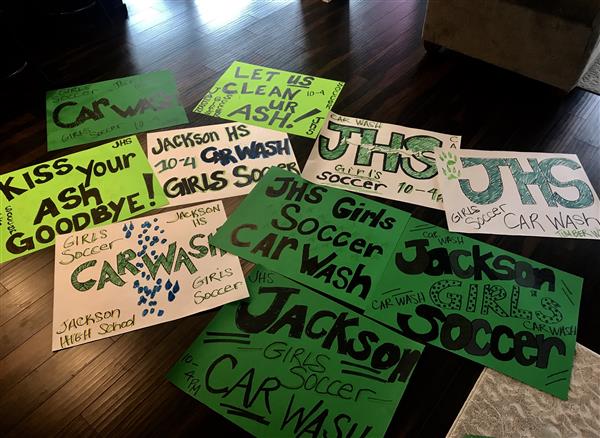 GIRLS
SOCCER
JHS
CAR WASH
GIRLS SOCCER 10-4
LET US
CLEAN UR
ASH!
10-4
JHS
KISS YOUR
ASH
GOODBYE!
JHS
SOCCER
JACKSON HS
10-4 CAR WASH
GIRLS SOCCER
CAR WASH
JHS
Girl's
Soccer 10-4
CA
JHS
GIRLS
SOCCER CAR WASH
TIMBER
GIRLS
SOCCER
JACKSON
HS
CAR WASH
JACKSON
HIGH SCHOOL
GIRLS
SOCCER
JHS Girls
Soccer
Car Wash
CAR WASH
Jackson
CAR WASH GIRLS
CAR WASH
Soccer
JHS
Jackson
GIRLS
Soccer
10-
4PM
CAR WASH